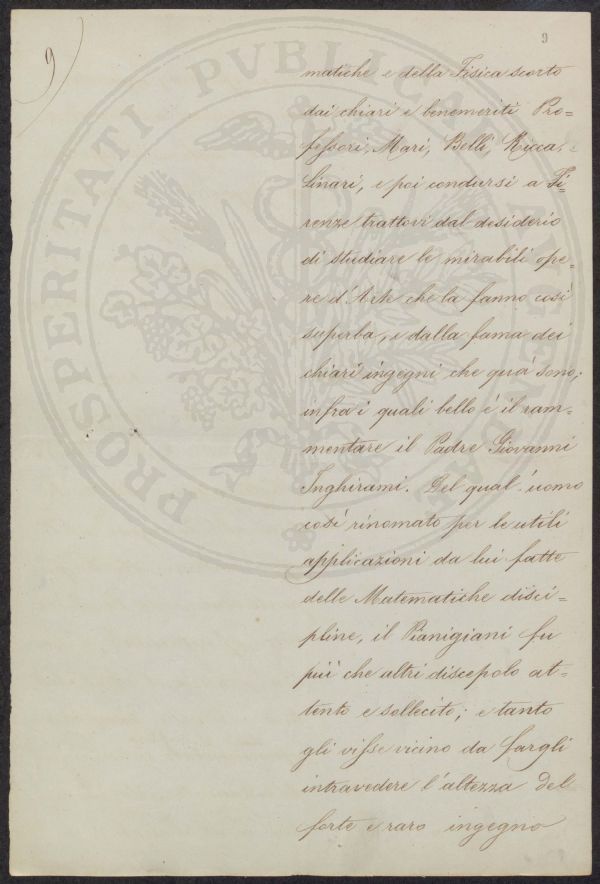 9
9
matiche e della Fisica scorto
dai chiari e benemeriti Pro=
fessori, Mari, Belli, Ricca,
Linari, e poi condursi a Fi=
renze trattovi dal desiderio
di studiare le mirabili ope=
re d'Arte che la fanno così
superba, e dalla fama dei
chiari ingegni che quà sono;
infra i quali bello è il ram=
mentare il Padre Giovanni
Inghirami. Del qual'uomo
così rinomato per le utili
applicazioni da lui fatte
delle Matematiche disci=
pline, il Pianigiani fu
più che altri discepolo at=
tento e sollecito; e tanto
gli visse vicino da fargli
intravedere l'altezza del
forte e raro ingegno
PROSPERITATI PVBLICAE AVGENDAE